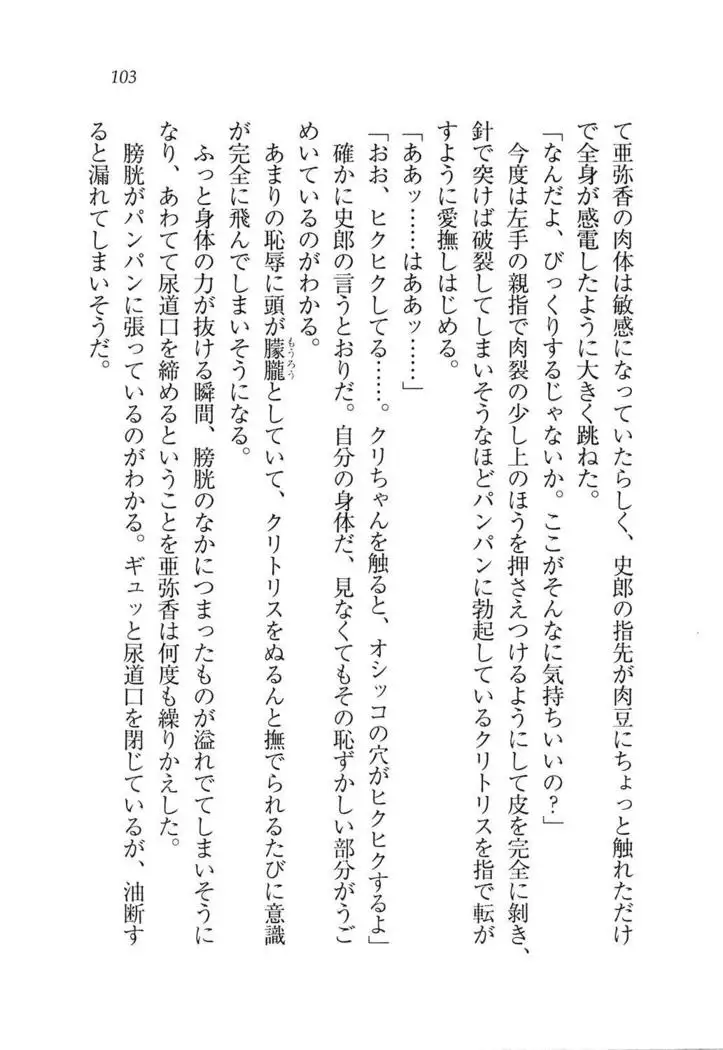 103
て亜弥香の肉体は敏感になっていたらしく、史郎の指先が肉豆にちょっと触れただけ
で全身が感電したように大きく跳ねた。
「なんだよ、びっくりするじゃないか。ここがそんなに気持ちいいの？」
今度は左手の親指で肉裂の少し上のほうを押さえつけるようにして皮を完全に剝き、
針で突けば破裂してしまいそうなほどパンパンに勃起しているクリトリスを指で転が
すように愛撫しはじめる。
「ああッ……はああッ……」
「おお、ヒクヒクしてる……。クリちゃんを触ると、オシッコの穴がヒクヒクするよ」
確かに史郎の言うとおりだ。自分の身体だ、見なくてもその恥ずかしい部分がうご
めいているのがわかる。
あまりの恥辱に頭が朦朧もうろうとしていて、クリトリスをぬるんと撫でられるたびに意識
が完全に飛んでしまいそうになる。
ふっと身体の力が抜ける瞬間、膀胱のなかにつまったものが溢れでてしまいそうに
なり、あわてて尿道口を締めるということを亜弥香は何度も繰りかえした。
膀胱がパンパンに張っているのがわかる。ギュッと尿道口を閉じているが、油断す
ると漏れてしまいそうだ。